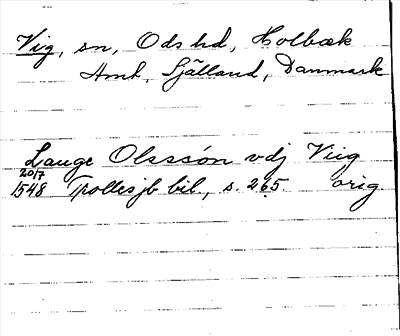 Vig, sn, Ods hd, Holbæk
Amt, Själland, Danmark
Lauge Olssøn vdj Viig
20/7
1548 Trolles jb bil., s. 265. orig